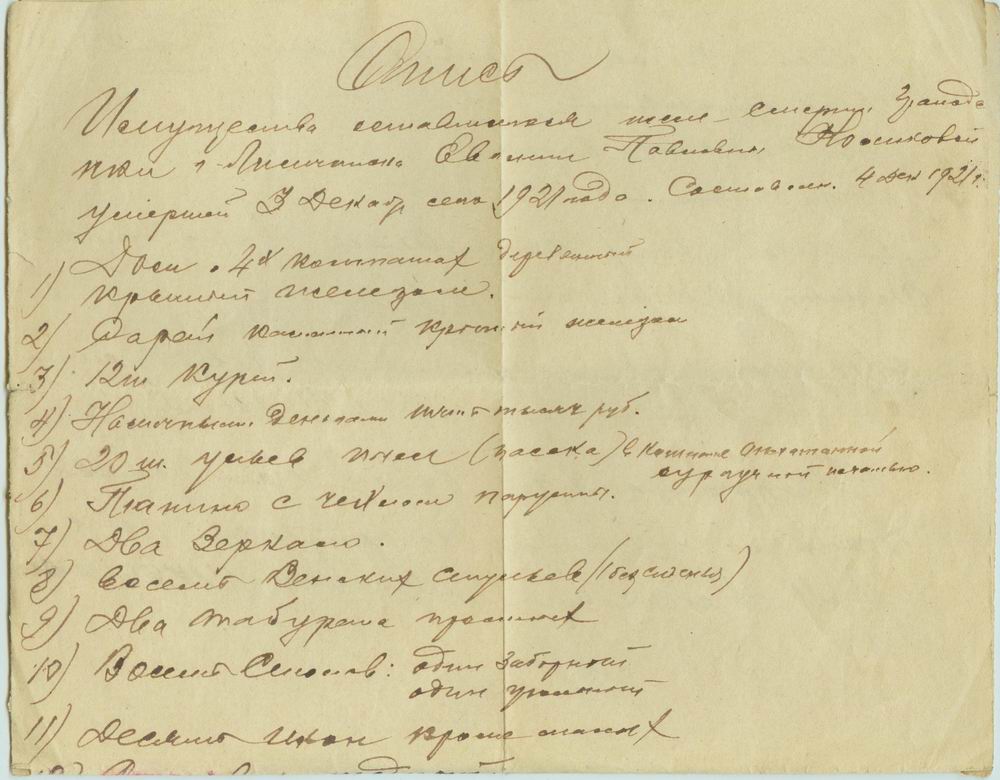 Опись
Имущества оставшегося после смерти Гражда
нки г. Лисичанска Евгении Павловны Носиковой
умершей 3 Декабр сего 1921 года. Составлен. 4 дек 1921 г.
1) Дом о 4х комнатах деревянный
крышей железом.
2) Сарай каменный крытый железом
3) 12 ш курей.
4) Наличными деньгами тысяч руб.
5) 20 ш. ульев пчел (пасека) в опечатанной
сургучной печатью.
6) Пианино с чехлом парусин.
7) Два Зеркала.
8) восемь Венских стульев (1 без сиденья)
9) Два табурета простых
10) Восемь Столов: один
один
11) Десять икон кроме малых